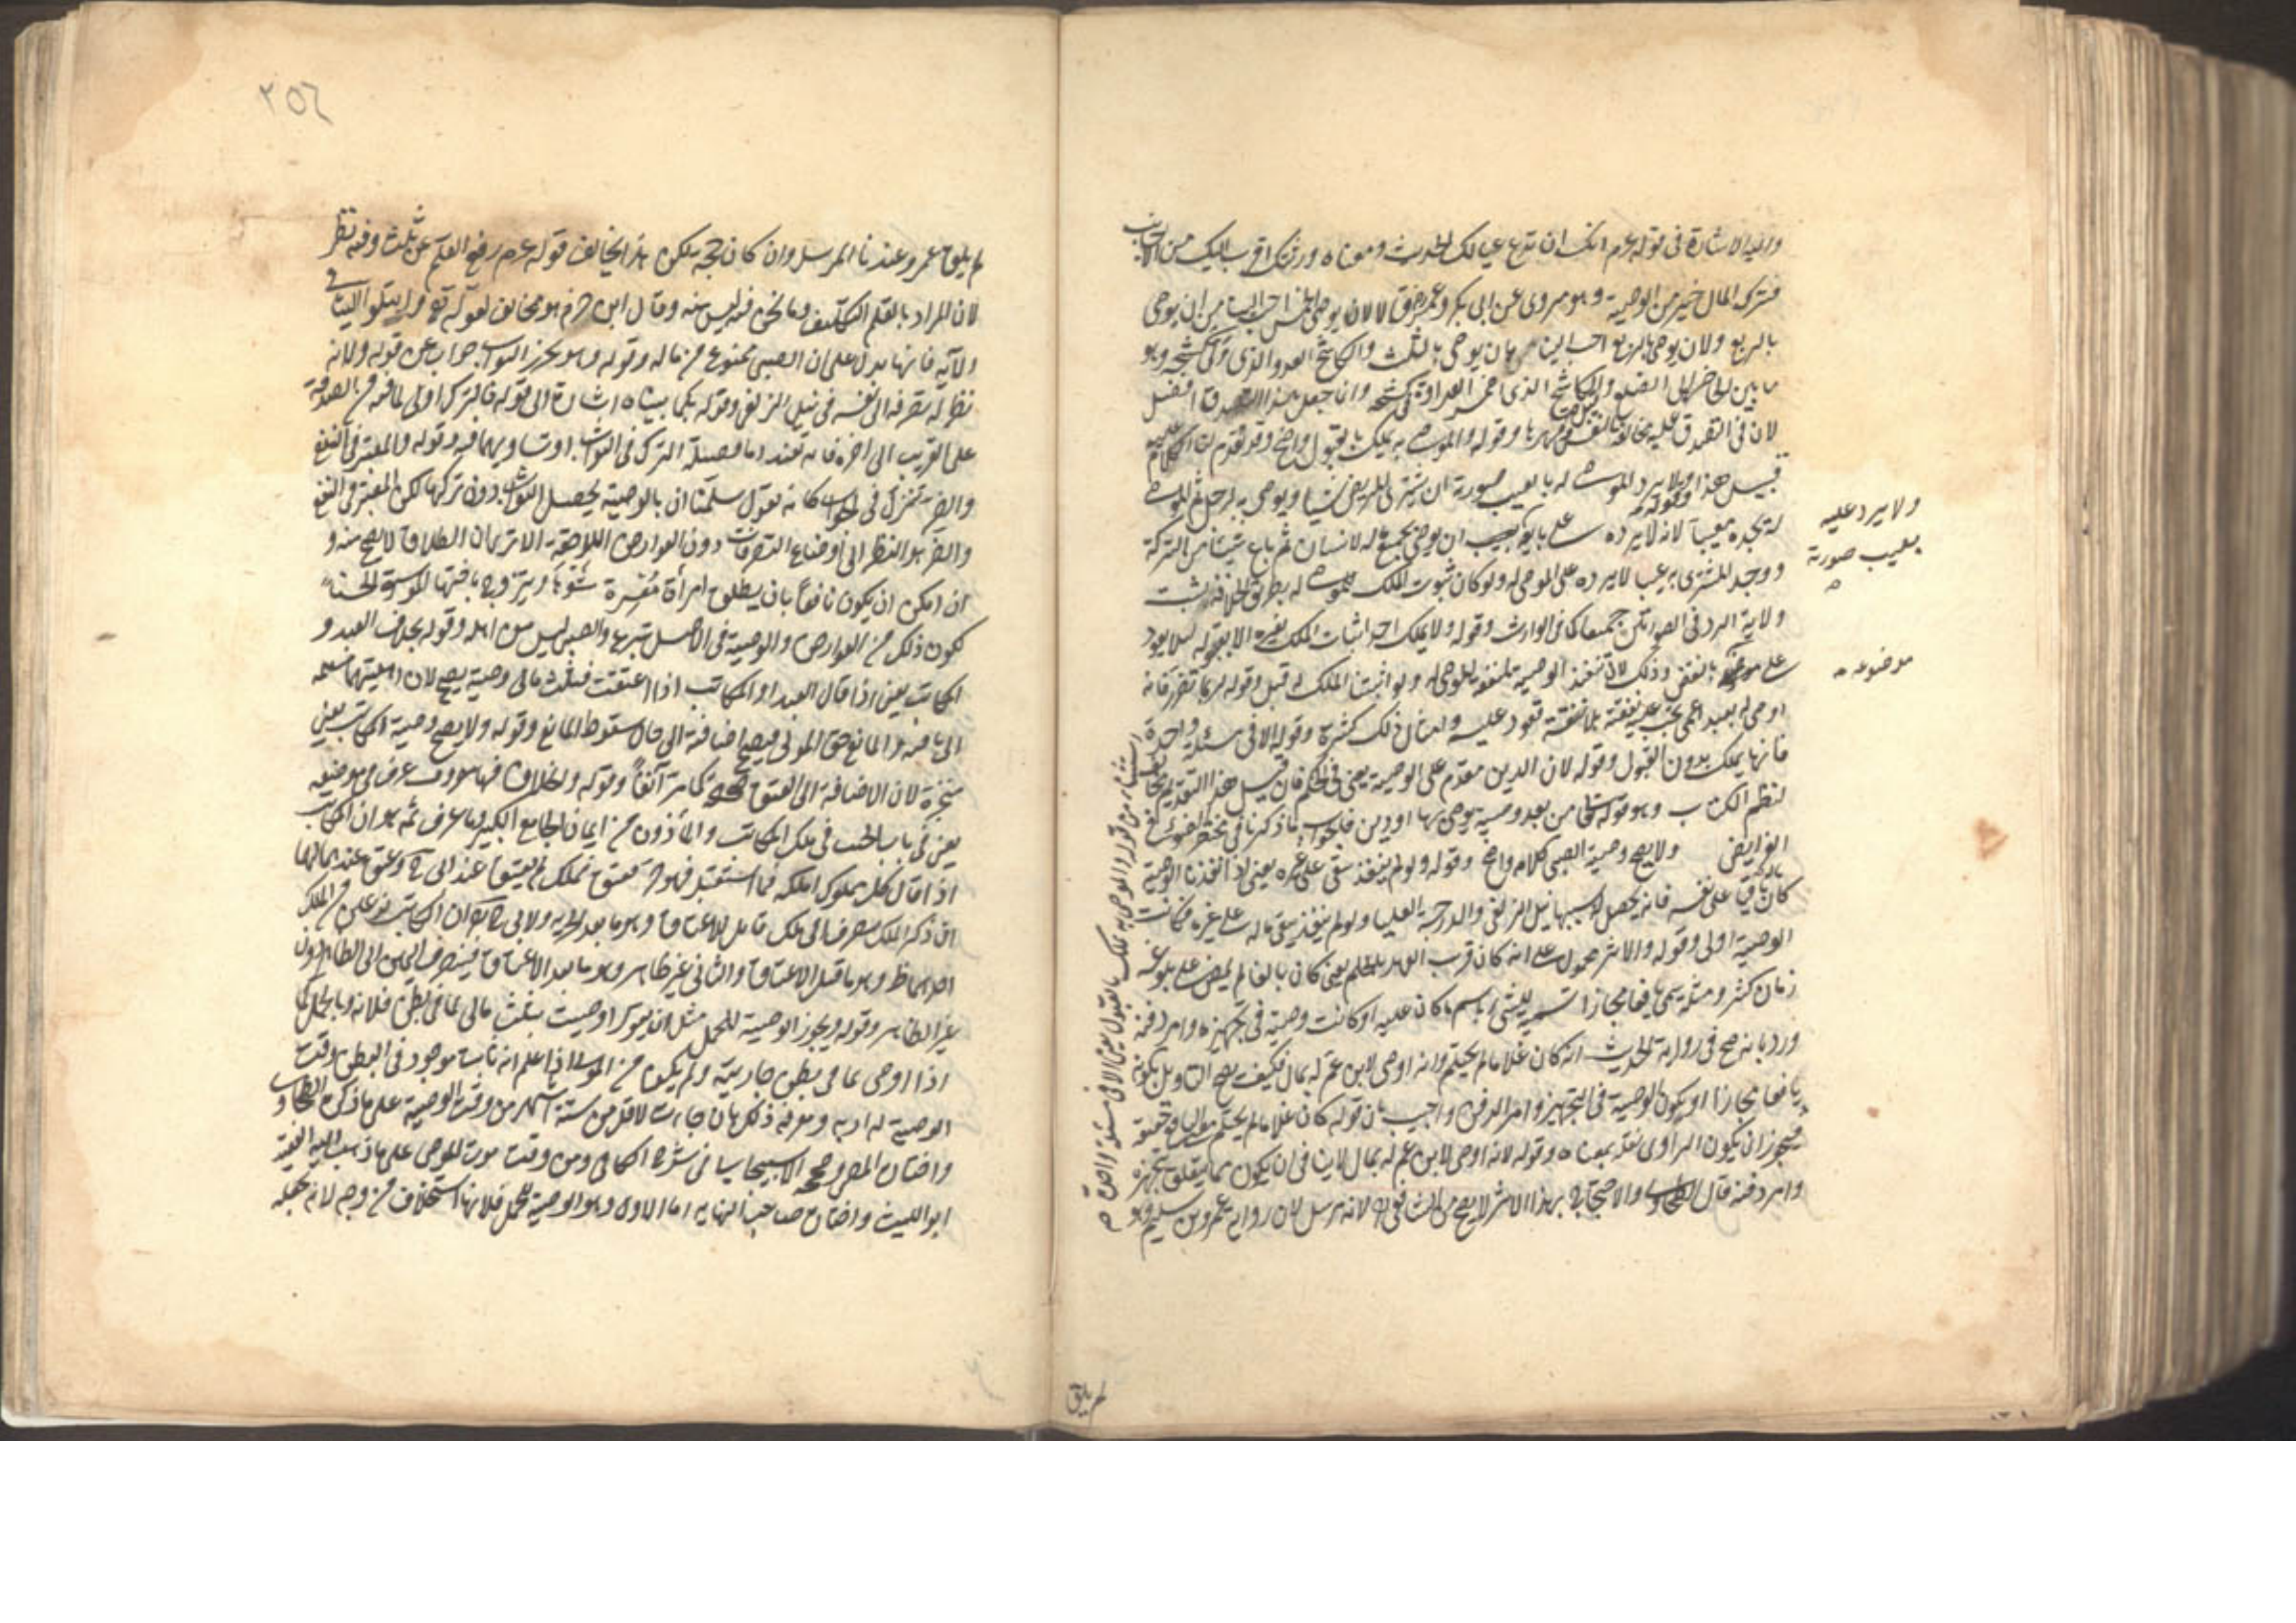 واليه الاشارة في قوله عم انك ان تدع عيالك الحديث ومعناه ورثتك اقرب اليك من الاجانب
فترك المال خير من الوصية وهو مروى عن ابى بكر وعمر رض قالا لان يوصى بالخمس احب الينا من ان يوصى
بالربع ولان يوصى بالربع احب الينا من ان يوصى بالثلث والكاشح العدو الذى ولى كشحه وهو
ما بين الخاصرة الى الضلع والكاشح الذى اضمر العداوة في كشحه وانما جعل هذا التصدق افضل
لان في التصدق عليه مخالفة النفس وقهرها وقوله والموصى به يملك بالقبول واضح وقد تقدم لنا الكلام عليه
قبيل هذا وقوله ولا يرد الموصى له بالعيب صورة ان يشترى المريض شيئا ويوصى به لرجل ثم الموصى
له يجده معيبا لانه لا يرده على بايعه ان يوصى بجميع ماله لانسان ثم باع شيئا من التركة
ووجد المشترى به عيبا لا يرده على الموصى له ولو كان ثبوت الملك للموصى له بطريق الخلافة لثبت
ولاية الرد في الصورتين جميعا كما في الوارث وقوله ولا يملك احد اثبات الملك لغيره الا بقبوله ليلا يعود
على موضوعه بالنقض وذلك لان تنفيذ الوصية لمنفعة الموصى له ولو اثبتنا الملك له قبل قبوله لربما تضرر فانه
اوصى له بعبد اعمى يجب عليه نفقته بلا منفعة تعود عليه وامثال ذلك كثيرة وقوله الا في مسئلة واحدة
فانها يملك بدون القبول وقوله لان الدين مقدم على الوصية يعنى في الحكم فان قيل هذا التقديم مخالف
لنظم الكتاب وهو قوله تعالى من بعد وصية يوصى بها او دين فالجواب ما ذكرنا في مختصر الضوء في
الفرايض ولا يصح وصية الصبى كلام واضح وقوله ولو لم ينفذ يبقى على غيره يعنى اذا انفذنا الوصية
كان باقى على نفسه فانه يحصل له بسببها نيل الزلفى والدرجة العليا ولو لم ينفذ يبقى ماله على غيره فكانت
الوصية اولى وقوله والاثر محمول على انه كان قريب العهد بالحلم يعنى كان بالغا لم يمض على بلوغه
زمان كثير ومثله يسمى يافعا مجازا تسمية للشئ باسم ما كان عليه او كانت وصيته في تجهيزه وامر دفنه
ورد بانه صح في رواية الحديث انه كان غلاما لم يحتلم وانه اوصى لابنة عم له بمال فكيف يصح التاويل بكونه
يافعا مجازا او بكون الوصية في التجهيز وامر الدفن واجيب بان قوله كان غلاما لم يحتلم حقيقة
فيجوز ان يكون الراوى نقله بمعناه وقوله لانه اوصى لابنة عم له بمال لا ينافى ان يكون مما يتعلق بتجهيزه
وامر دفنه قال الطحاوى والاحتجاج بهذا الاثر لا يصح من الشافعى لانه مرسل لان راويه عمرو بن سليم وهو
ولا يرد عليه
بعيب صورته
موضوعه
استثناء من قوله والموصى به يملك بالقبول يعنى الا في مسئلة واحدة
لم يلق
٢٥٦
لم يلق عمر وعندنا المرسل وان كان حجة لكن هذا يخالف قوله عم رفع القلم عن ثلث وفيه نظر
لان المراد بالقلم التكليف وما نحن فيه ليس منه وقال ابن حزم هو مخالف لقوله تع وابتلوا اليتامى
الآية فانها تدل على ان الصبى ممنوع من ماله وقوله وهو يحرز الثواب جواب عن قوله ولانه
نظر له بصرفه الى نفسه في نيل الزلفى وقوله كما بيناه اشارة الى قوله فالترك اولى لما فيه من الصدقة
على القريب الى اخره فانه تفيد اما فضيلة الترك في الثواب او تساويهما فيه وقوله والمعتبر في النفع
والضرر تنزل في الجواب كانه يقول سلمنا ان بالوصية يحصل الثواب دون تركها لكن المعتبر في النفع
والضرر هو النظر الى اوضاع التصرفات دون العوارض اللاحقة الا ترى ان الطلاق لا يصح منه و
ان امكن ان يكون نافعا بان يطلق امرأة معسرة شوهاء ويتزوج باختها الموسرة الحسناء
لكون ذلك من العوارض والوصية في الاصل تبرع والصبى ليس من اهله وقوله بخلاف العبد و
المكاتب يعنى اذا قال العبد او المكاتب اذا اعتقت فثلث مالى وصية يصح لان اهليتهما
تامة والمانع حق المولى فيصح اضافته الى حال سقوط المانع وقوله ولا يصح وصية المكاتب يعنى
منجزة لان الاضافة الى العتق كما مر آنفا وقوله والخلاف فيها معروف عرف في موضعه
يعنى في باب الحنث في ملك المكاتب والمأذون من ايمان الجامع الكبير وما عرف ثمه هو ان المكاتب
اذا قال كل مملوك املكه فيما استقبل فهو حر فعتق فملك لم يعتق عند ابى ح وعتق عندهما لهما
ان ذكر الملك يصرف الى ملك قابل للاعتاق وهو ما بعد الحرية ولابى ح ان للمكاتب نوعين من الملك
احدهما ظاهر وهو ما قبل الاعتاق والثانى غير ظاهر وهو ما بعد الاعتاق فينصرف اليمين الى الظاهر دون
غير الظاهر وقوله ويجوز الوصية للحمل مثل ان يقول اوصيت بثلث مالى لما في بطن فلانة وبالحمل كما
اذا اوصى بما في بطن جاريته ولم يكن من المولى اذا علم انه ثابت موجود في البطن وقت
الوصية له او به ومعرفة ذلك بان جاءت لاقل من ستة اشهر من وقت الوصية على ما ذكره الطحاوى
واختاره المص وصححه الاسبيجابى في شرح الكافى ومن وقت موت الموصى على ما ذهب اليه الفقيه
ابو الليث واختاره صاحب النهاية اما الاول وهو الوصية للحمل فلانها استخلاف من وجه لانه يجعله